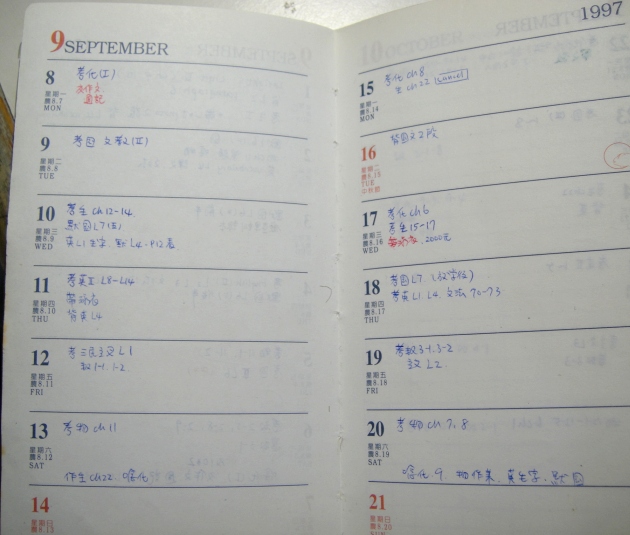 9 SEPTEMBER
8
星期一
農8.7
MON
考化(I)
交作文
週記
9
星期二
農8.8
TUE
考国 文教(II)
10
星期三
農8.9
WED
考生 ch12-14
默国L7(五)
英L1生字. 默L4. P12看
11
星期四
農8.10
THU
考英II L8-L14
背英L4
12
星期五
農8.11
FRI
考三民主义L1
数1-1. 1-2.
13
星期六
農8.12
SAT
考物ch11
作生ch22. 唸化
14
星期日
農8.13
1997
15
星期一
農8.14
MON
考化ch8
生ch22 cancel
16
星期二
農8.15
TUE
中秋節
背国文2段
17
星期三
農8.16
WED
考化ch6
考生15-17
2000元
18
星期四
農8.17
THU
考国L7
考英L1. L4. 文法70-73
19
星期五
農8.18
FRI
考数3-1. 3-2
L2
20
星期六
農8.19
SAT
考物ch7. 8
唸化. 9. 物作業. 英生字. 默国
21
星期日
農8.20
SUN